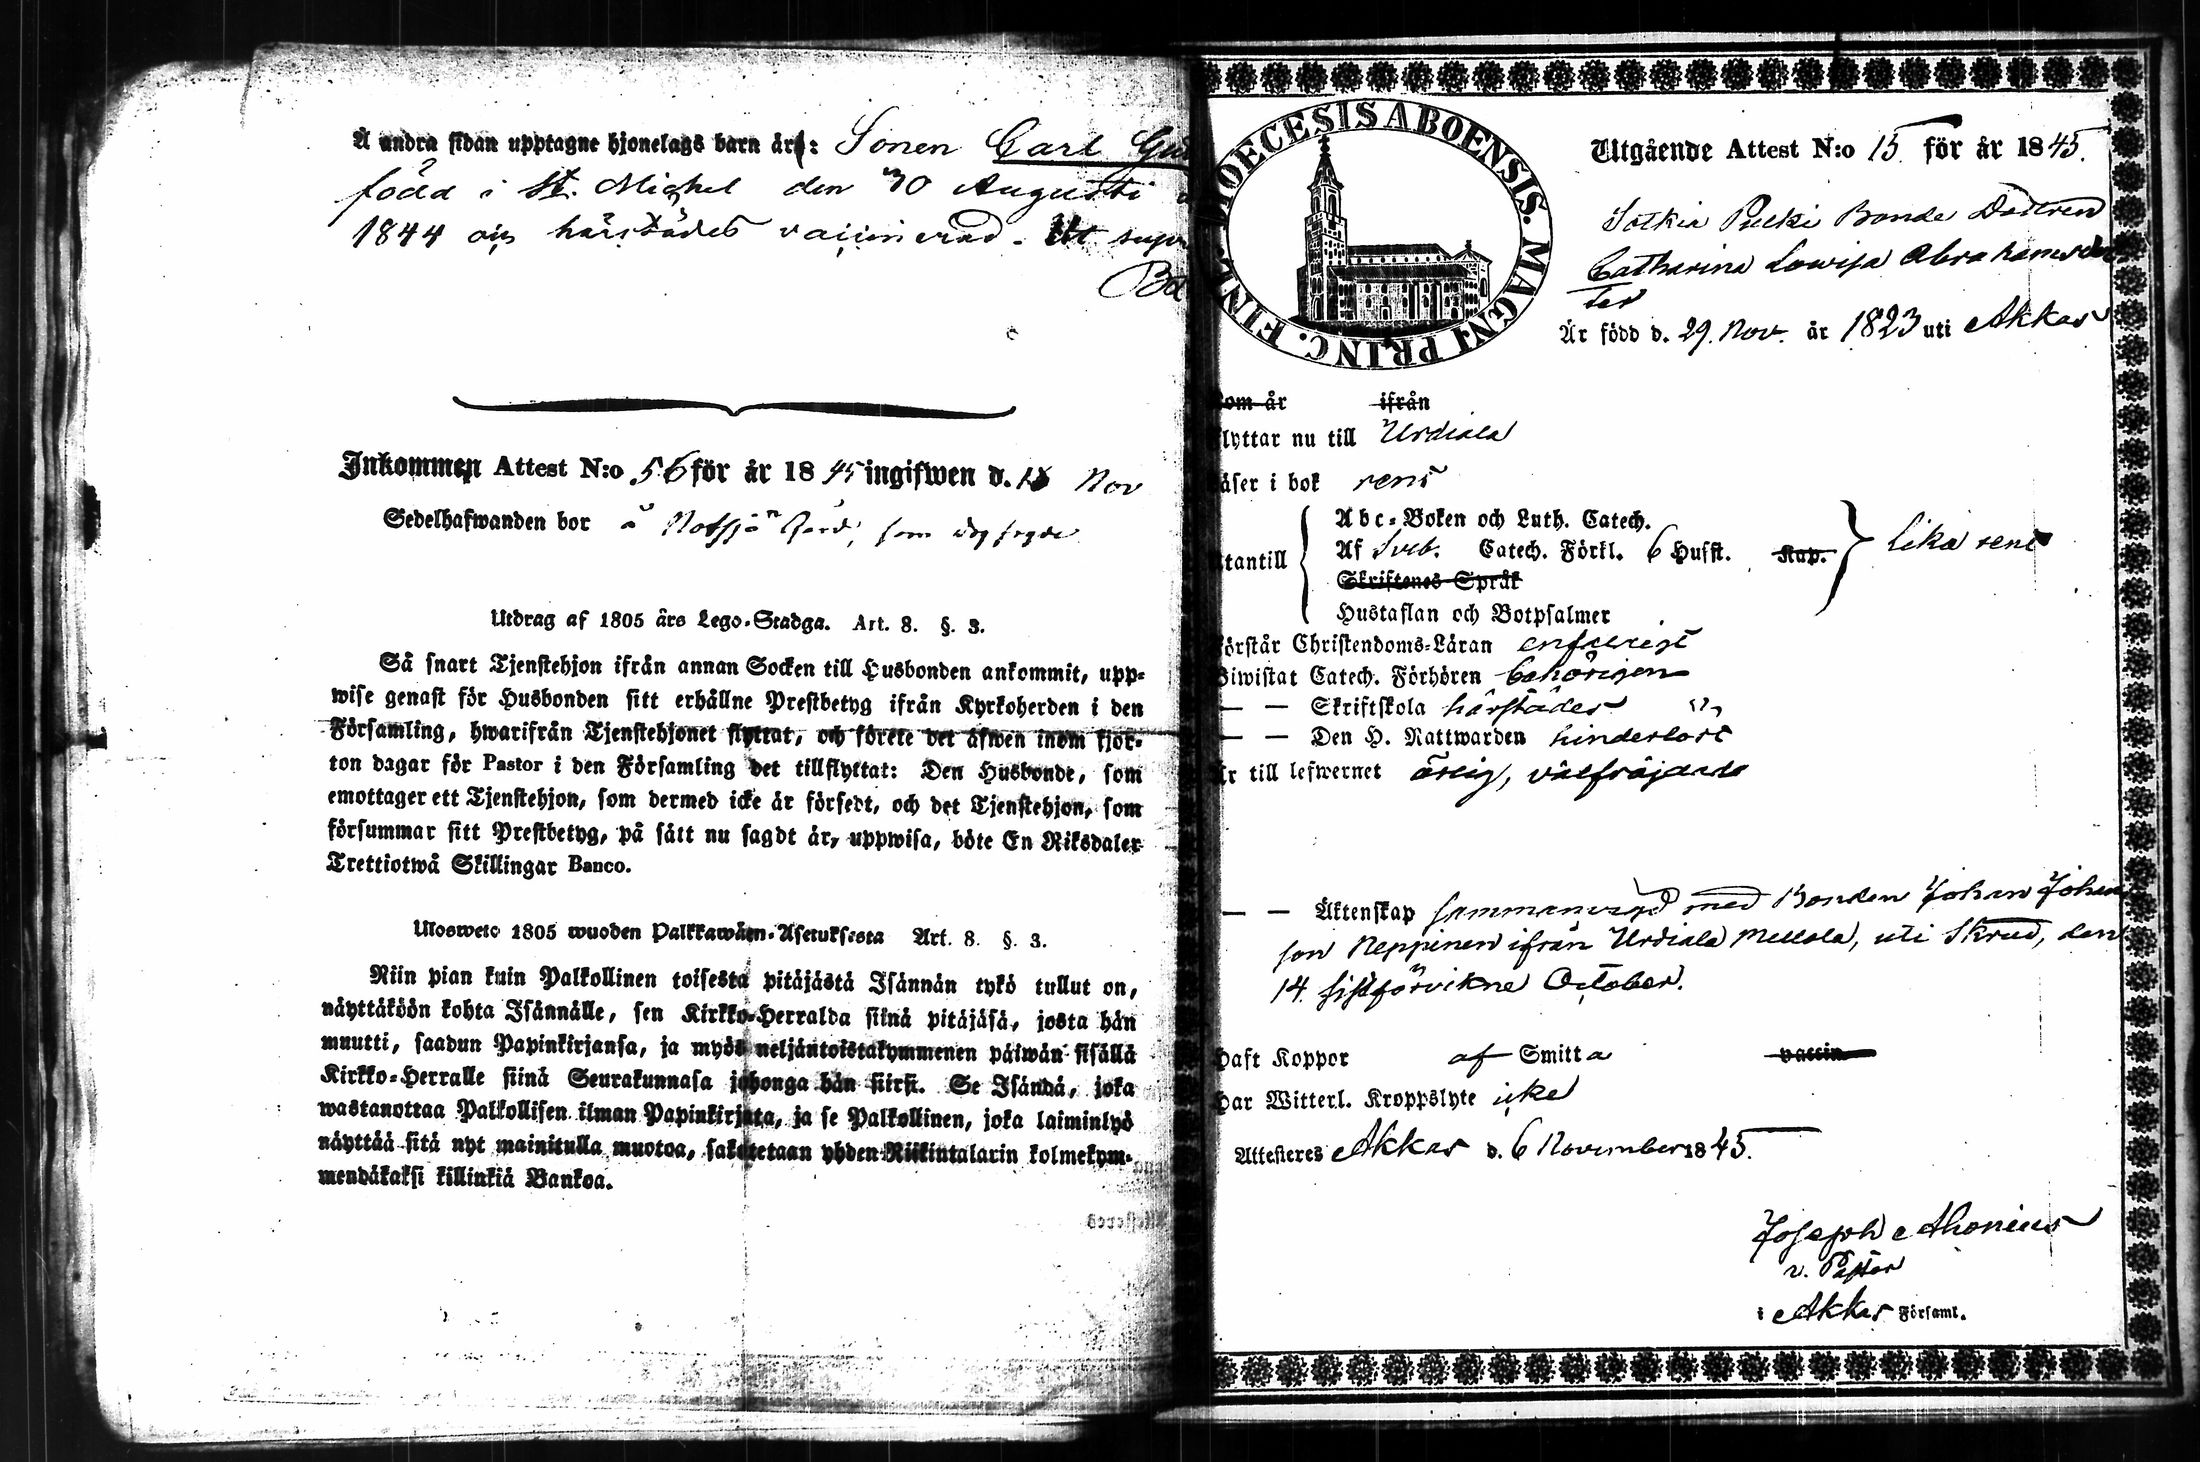 Å andra sidan upptagne hjonelags barn är: Sonen Carl
född i St. Michel den 30 Augusti
1844 och härstädes vaccinerad. Ut supr
Inkommen Attest N:o 56 för år 1845 ingifwen d. Nov
Sedelhafwanden bor å Notsjö
Utdrag af 1805 års Lego-Stadga. Art. 8. §. 3.
Så snart Tjenstehjon ifrån annan Socken till Husbonden ankommit, upp-
wise genast för Husbonden sitt erhållne Prestbetyg ifrån Kyrkoherden i den
Församling, hwarifrån Tjenstehjonet flyttat, och förete det äfwen inom fjor-
ton dagar för Pastor i den Församling det tillflyttat: Den Husbonde, som
emottager ett Tjenstehjon, som dermed icke är försedt, och det Tjenstehjon, som
försummar sitt Prestbetyg, på sätt nu sagdt är, uppwisa, böte En Riksdaler
Trettiotwå Skillingar Banco.
Ulosweto 1805 wuoden Palkkawäen-Asetuksesta Art. 8. §. 3.
Niin pian kuin Palkollinen toisesta pitäjästä Isännän tykö tullut on,
näyttäköön kohta Isännälle, sen Kirkko-Herralda siinä pitäjäsä, josta hän
muutti, saadun Papinkirjansa, ja myös neljäntoistakymmenen päiwän sisällä
Kirkko-Herralle siinä Seurakunnasa johonga hän siirsi. Se Isändä, joka
wastanottaa Palkollisen ilman Papinkirjata, ja se Palkollinen, joka laiminlyö
näyttää sitä nyt mainitulla muotoa, saketetaan yhden Riikintalarin kolmekym-
mendäkaksi killinkiä Bankoa.
DIOECESIS ABOENSIS. MAGNI PRINC. FINL.
Utgående Attest N:o 15 för år 1845.
Sotkia Pulki Bonde Dottren
Catharina Lowisa Abrahamsdot
ter
Är född d. 29. Nov. år 1823 uti Akkas
som är ifrån
flyttar nu till Urdiala
läser i bok rent
utantill
Abc-Boken och Luth. Catech.
Af Sveb. Catech. Förkl. 6 Hufst. Kap.
Skriftenes Språk
Hustaflan och Botpsalmer
lika rent
förstår Christendoms-Läran enfaldigt
Biwistat Catech. Förhören behörigen
— — Skriftskola härstädes
— — Den H. Nattwarden hinderlöst
är till lefwernet ärlig, välfräjdade
— — Äktenskap sammanvigd med Bonden Johan Johan
son Neppinen ifrån Urdiala Mellola, uti Skrud, den
14 sistförvikne October.
Haft Koppor af Smitta vaccin
Har Witterl. Kroppslyte icke
Attesteres Akkas d. 6 November 1845.
Joseph Ahonius
v. Pastor
i Akkas Församl.